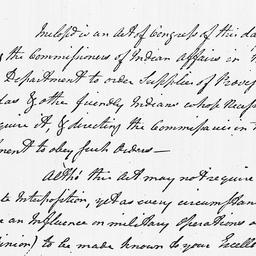 Inclosed is an Act of Congress of this da
the Commissioners of Indian Affairs in
Department to order Supplies of Provis
das & other friendly Indians whose Necess
quire it, & directing the Commissaries in
ment to obey such Orders—
Altho' this Act may not require
te Interposition, yet as every circumstan
e an Influence in military Operations
inion) to be made known to your Excelle